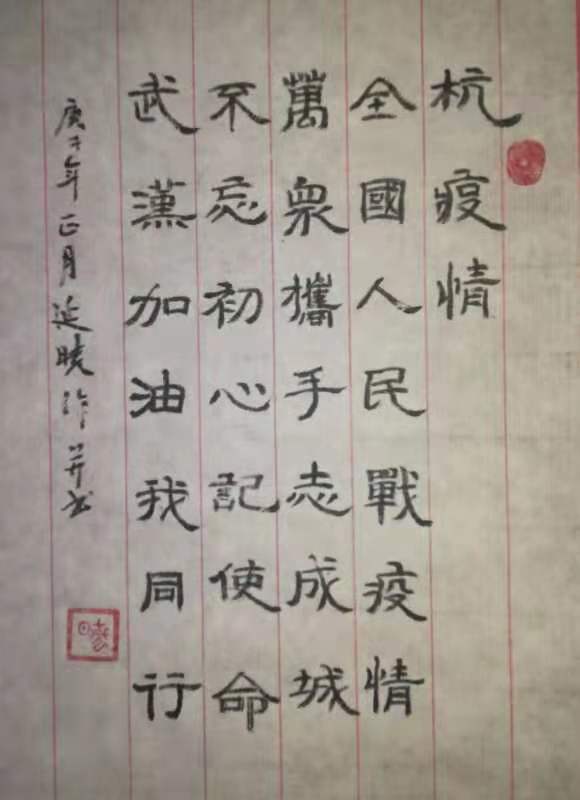 杭疫情
全國人民戰疫情
萬衆攜手志成城
不忘初心記使命
武漢加油我同行
庚子年正月延曉作並书